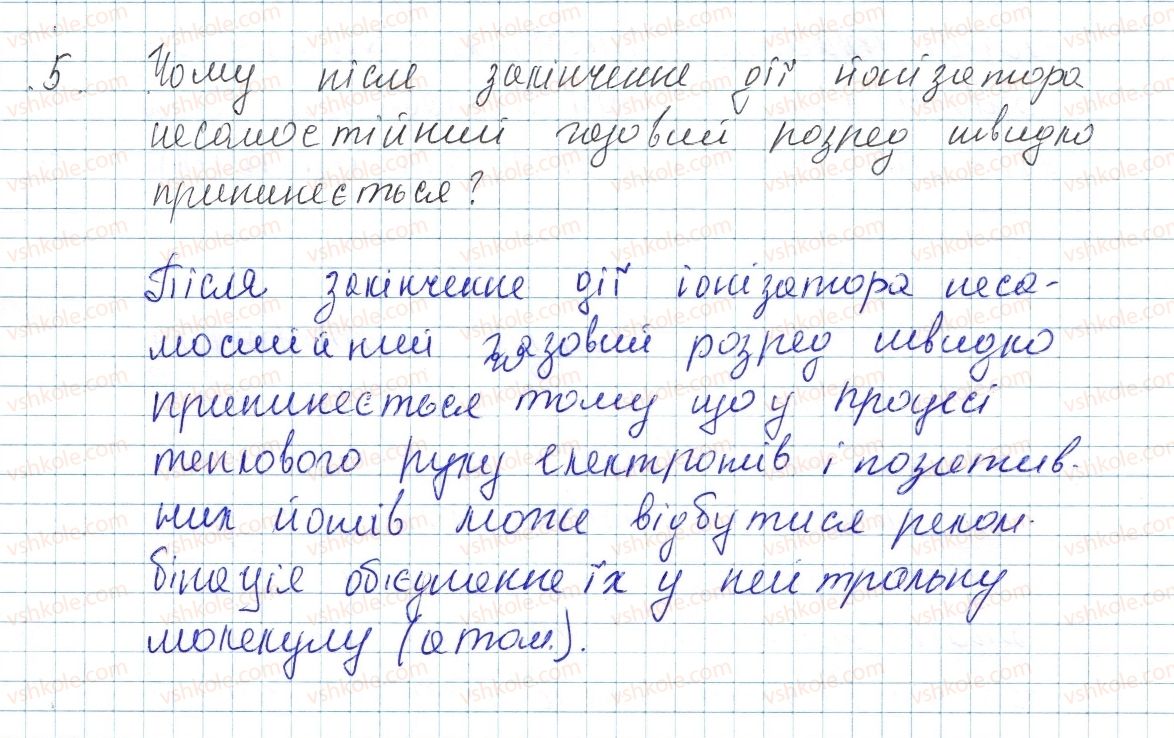 5. Чому після закінчення дії йонізатора
несамостійний газовий розряд швидко
припиняється?
Після закінчення дії іонізатора неса-
мостійний газовий розряд швидко
припиняється тому що у процесі
теплового руху електронів і позитив-
них йонів може відбутися реком-
бінація обієднання їх у нейтральну
молекулу (атом).